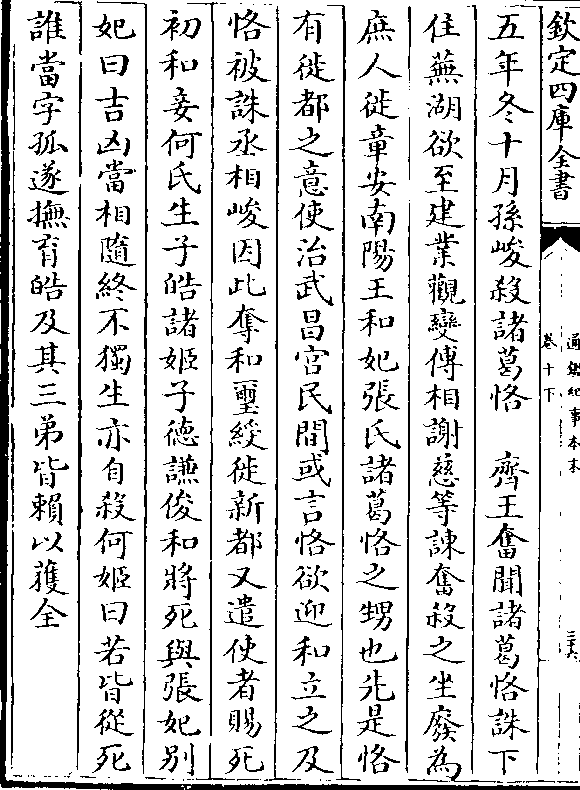 欽定四庫全書
通鑑紀事本末
卷十下
三六
五年冬十月孫峻殺諸葛恪　齊王奮聞諸葛恪誅下
住蕪湖欲至建業觀變傅相謝慈等諫奮殺之坐廢為
庶人徙章安南陽王和妃張氏諸葛恪之甥也先是恪
有徙都之意使治武昌宫民間或言恪欲迎和立之及
恪被誅丞相峻因此奪和璽綬徙新都又遣使者賜死
初和妾何氏生子皓諸姬子德謙俊和將死與張妃别
妃曰吉凶當相隨終不獨生亦自殺何姬曰若皆從死
誰當字孤遂撫育皓及其三弟皆賴以獲全